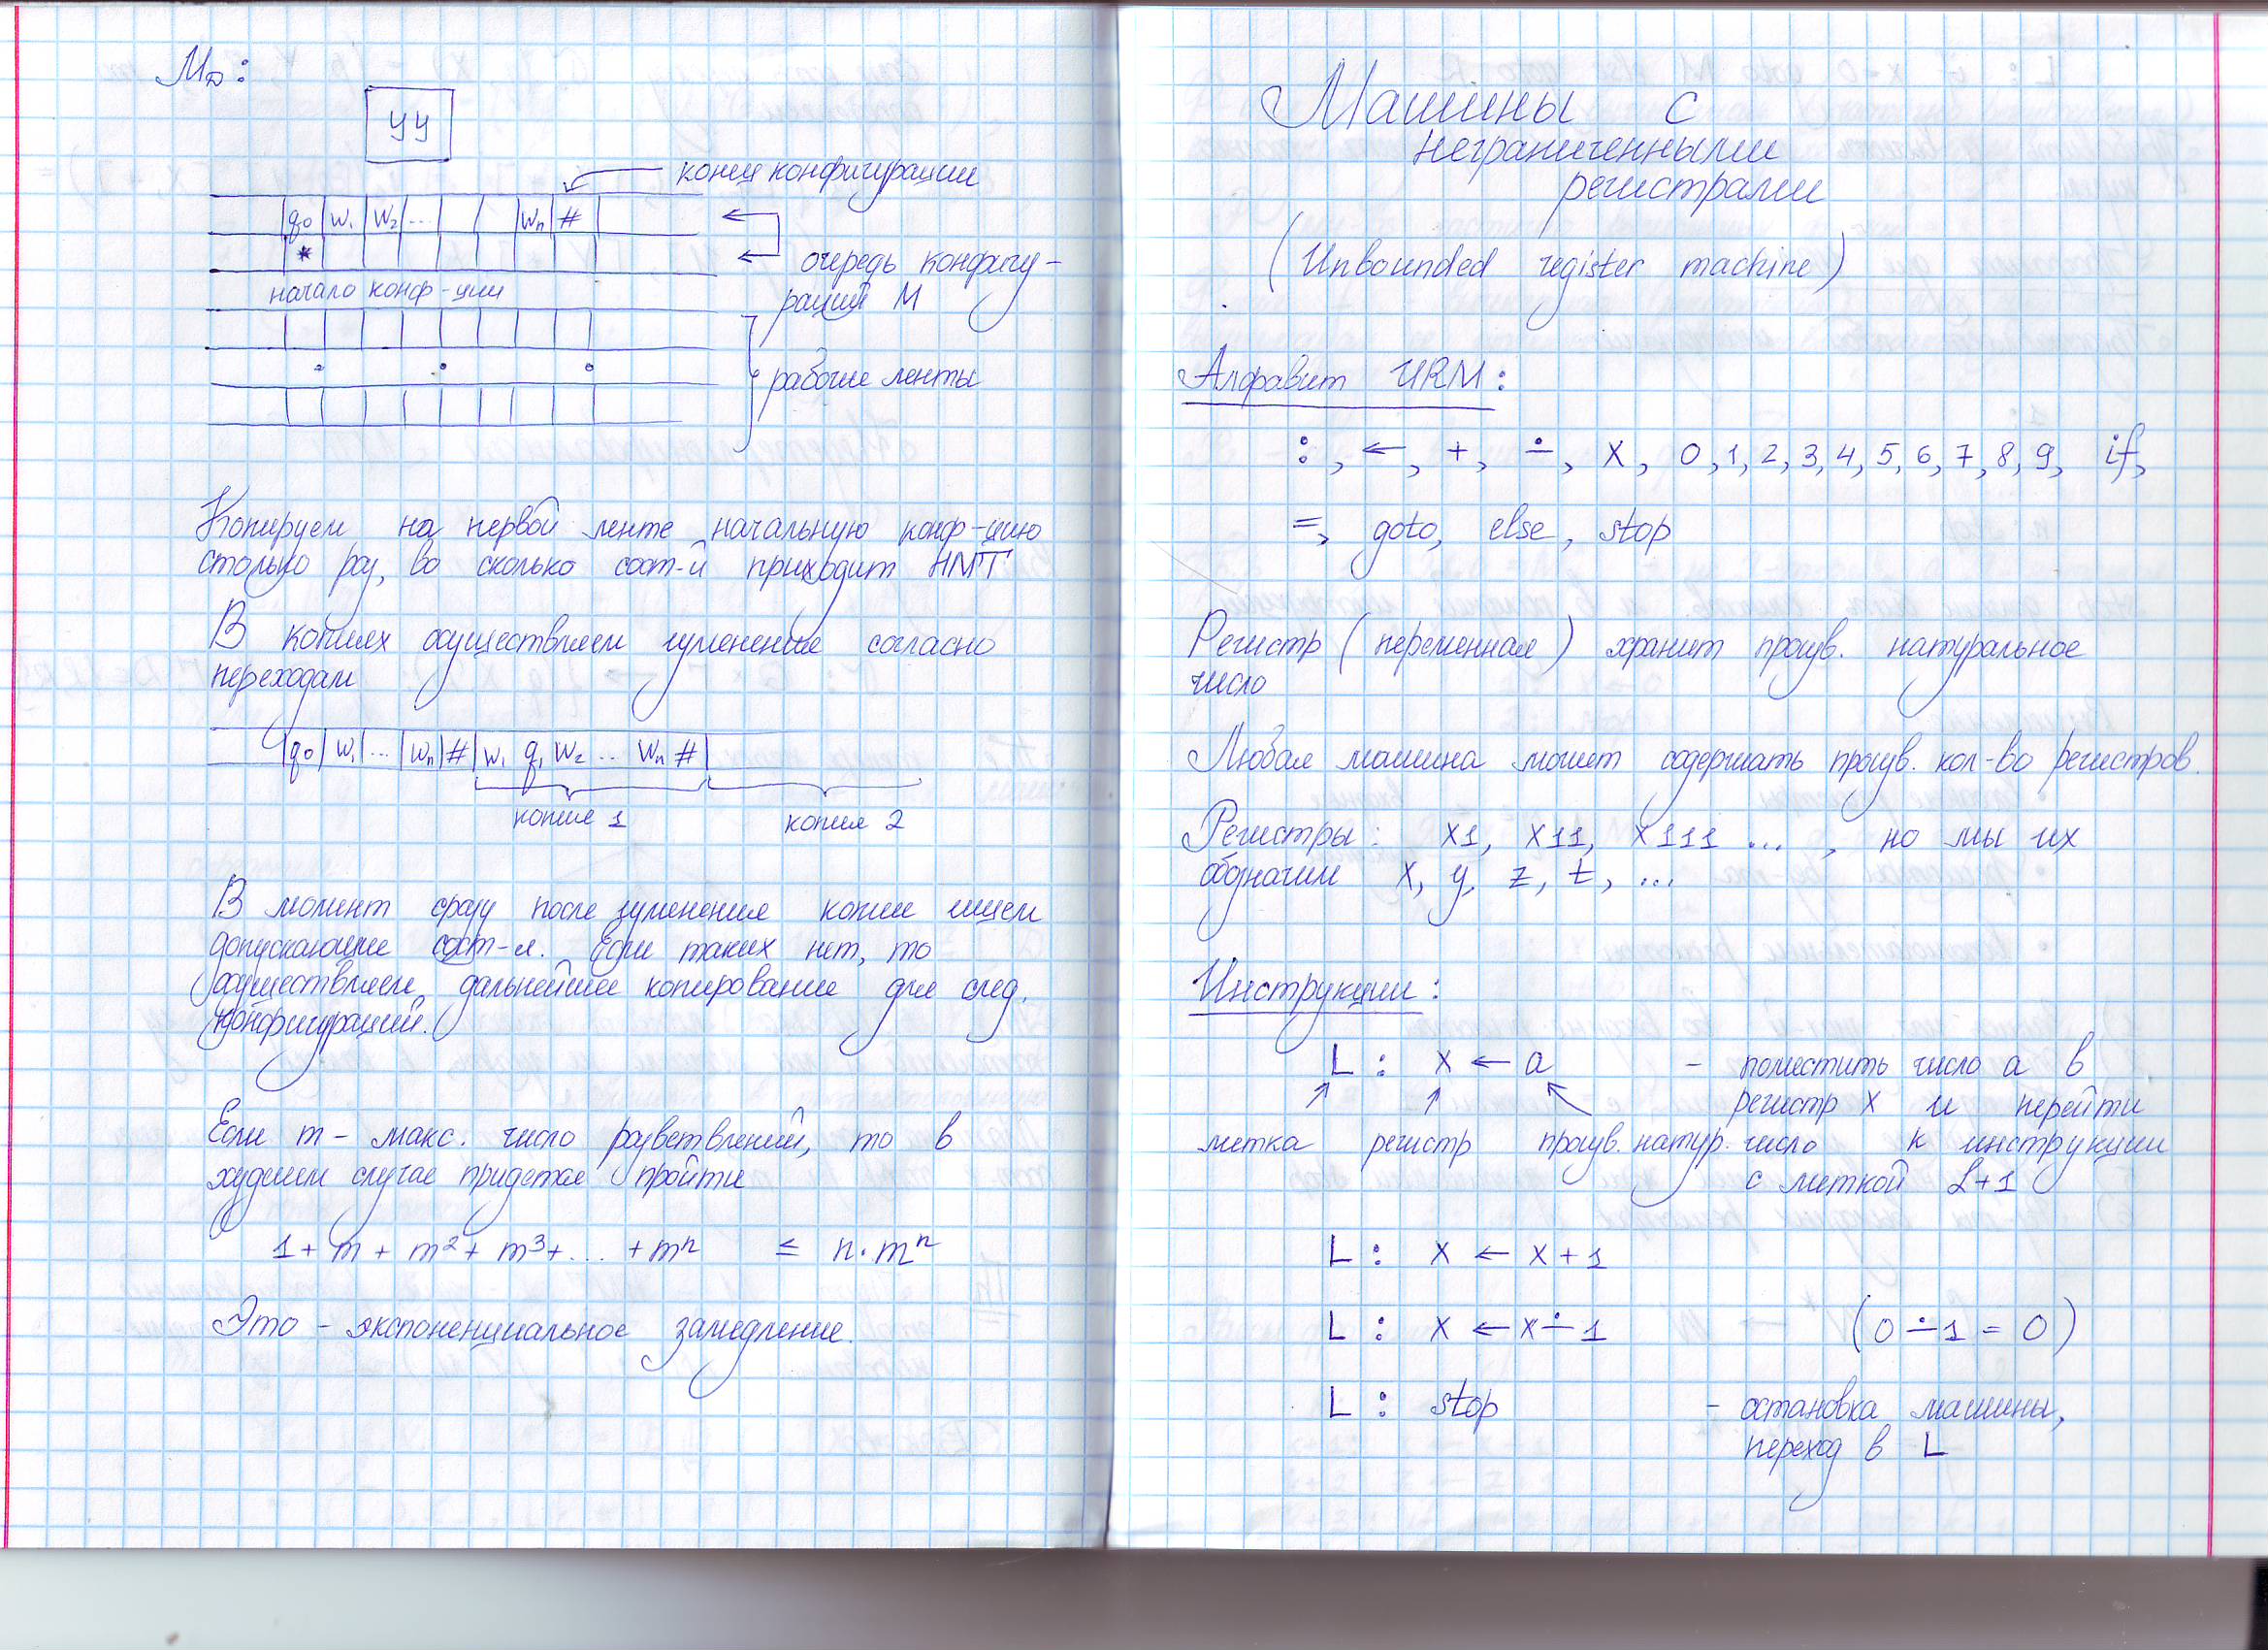 M_D:
УУ
конец конфигурации
q0 w1 w2 ... wn #
*
очередь конфигу-
раций М
начало конф-ции
рабочие ленты
Копируем на первой ленте начальную конф-цию
столько раз, во сколько сост-й приходит НМТ
В копиях осуществляем изменения согласно
переходам
q0 w1 ... wn # w1 q1 w2 ... wn #
копия 1 копия 2
В момент сразу после изменения копии ищем
допускающие сост-я. Если таких нет, то
осуществляем дальнейшее копирование для след.
конфигураций.
Если m - макс. число разветвлений, то в
худшем случае придется пройти
1 + m + m² + m³ + ... + mⁿ ≤ n·mⁿ
Это - экспоненциальное замедление.
Машины с
неграниченными
регистрами
(Unbounded register machine)
Алфавит URM:
:, ←, +, ∸, X, 0,1,2,3,4,5,6,7,8,9, if,
=, goto, else, stop
Регистр (переменная) хранит произв. натуральное
число
Любая машина может содержать произв. кол-во регистров.
Регистры: X1, X11, X111 ... , но мы их
обозначим X, y, z, t, ...
Инструкции:
L : X ← a - поместить число a в
регистр X и перейти
метка регистр произв. натур. число к инструкции
с меткой L+1
L : X ← X + 1
L : X ← X ∸ 1 (0 ∸ 1 = 0)
L : stop - остановка машины,
переход в L